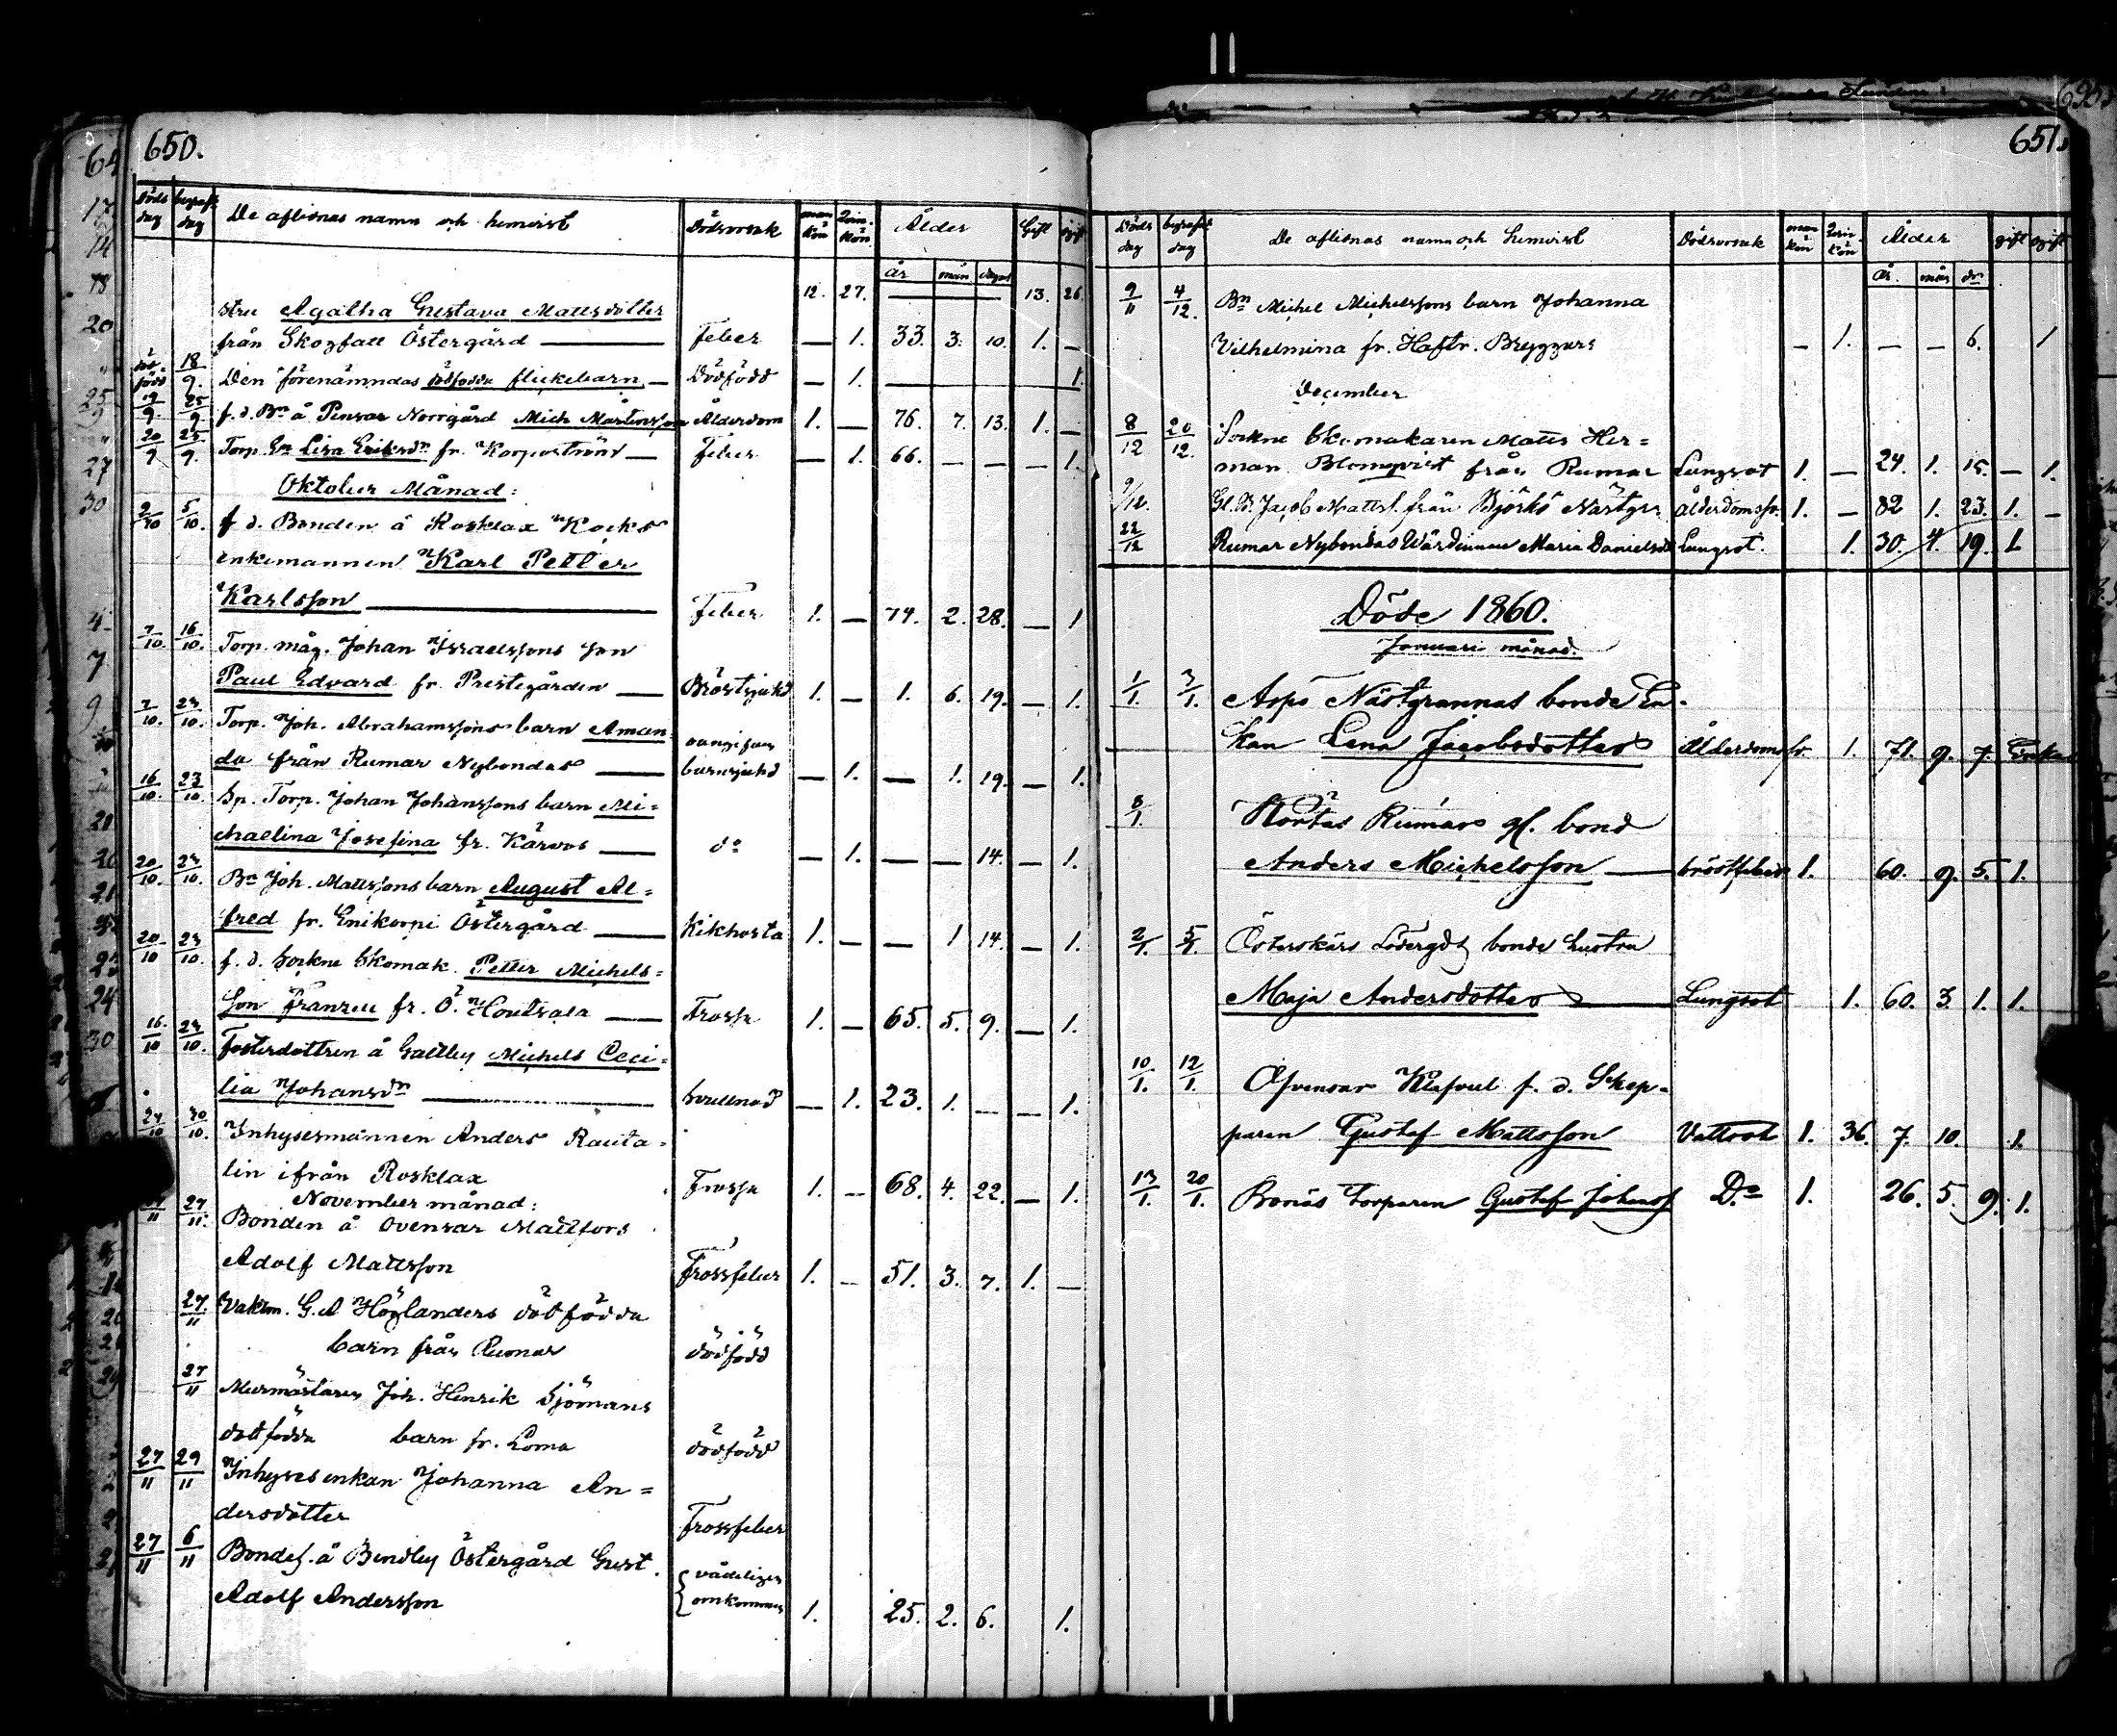 650.
Döds dag begrafn. dag De aflidnas namn och hemvist Dödsorsak man kön Qvin kön Ålder Gift ogift
år mån dagar
12. 27. 13. 26
stru Agatha Gustava Mattsdotter
från Skogfall Östergård — Feber — 1. 33. 3. 10. 1. —
död född 18/9. Den förenämndas dödfödda flickebarn — Dödfödd — 1. 1.
19/9. 25/9 f. d. Bn å Pensar Norrgård Mich Mårtensson Ålderdom 1. — 76. 7. 13. 1. —
20/9 25/9. Torp. En Lisa Eriksdr fr. Korpoström — Feber — 1. 66. — — — 1.
Oktober Månad:
2/10 5/10. f. d. Bonden å Rosklax Kocks
enkemannen Karl Petter
Karlsson — Feber 1. — 74. 2. 28. — 1
7/10. 16/10. Torp. måg. Johan Israelssons son
Paul Edvard fr. Prestegården — Bröstsjukd 1. — 1. 6. 19. — 1.
7/10. 23/10. Torp. Joh. Abrahamssons barn Aman-
da från Rumar Nybondas — oangifven barnsjukd — 1. — 1. 19. — 1.
16/10. 23/10. Sp. Torp. Johan Johanssons barn Mi=
chaelina Josefina fr. Kårvos — do — 1. — — 14. — 1.
20/10. 23/10. Bn Joh. Mattssons barn August Al=
fred fr. Enikorpi Östergård — Kikhosta 1. — — 1 14. — 1.
20/10 23/10. f. d. Sockne Skomak. Petter Michels=
son Franzen fr. Ö. Houtsala — Frossa 1. — 65. 5. 9. — 1.
16./10 23/10. Fosterdottren å Galtby Michels Ceci=
lia Johansdr — Svullnad — 1. 23. 1. — — 1.
27/10 30/10. Inhysesmannen Anders Rauta=
lin ifrån Rosklax Frossa 1. — 68. 4. 22. — 1.
November månad:
27/11. Bonden å Ovensar Mattfors
Adolf Mattsson Frossfeber 1. — 51. 3. 7. 1. —
27./11 Vaktm. G. A Höglanders dödfödda
barn från Rumar dödfödd
27/11 Murmästaren Joh. Henrik Sjömans
dödfödda barn fr. Loma dödfödd
27/11 29/11 Inhyses enkan Johanna An=
dersdotter Frossfeber
27/11 6/11 Bondes. å Bendby Östergård Gust.
Adolf Andersson vådeligen omkommen 1. 25. 2. 6. 1.
651.
Döds dag begrafn. dag De aflidnas namn och hemvist Dödsorsak man kön Qvin kön Ålder gift ogift
år. mån dr
9/11 4/12. Bn Michel Michelssons barn Johanna
Vilhelmina fr. Haftr. Bryggars — 1. — — 6. 1
December
8/12 20/12. Sockne Skomakaren Matts Her=
man Blomqvist från Rumar Lungsot 1. — 24. 1. 15. — 1.
9/12. Gl. B. Jacob Matts. från Björkö Nästgr. ålderdomssv. 1. — 82 1. 23. 1. —
22/12 Rumar Nybondas Värdinnan Maria Danielsdr Lungsot. 1. 30. 4. 19. 1.
Döde 1860.
Januari månad.
1/1. 3/1. Aspö Nästgrannas bonde En-
kan Lena Jacobsdotter Ålderdomssv. 1. 71. 9. 7. Enka
Hörtas Rumar gl. bond
Anders Michelsson — bröstfeber 1. 60. 9. 5. 1.
2/1 5/1 Österskärs Södergd bonde hustru
Maja Andersdotter — Lungsot 1. 60. 3 1. 1.
10/1. 12/1. Ovensar Klefvel f. d. Skep-
paren Gustaf Mattsson Vattsot 1. 36. 7. 10. 1.
13/1. 20/1. Bonäs Torparen Gustaf Johans Do 1. 26. 5. 9. 1.